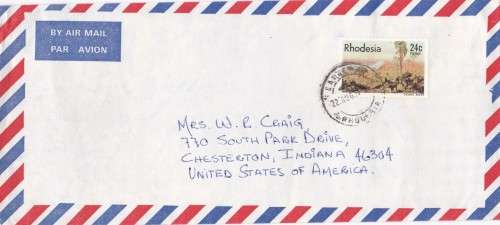 BY AIR MAIL
PAR AVION
Rhodesia
24c
MRS. W. R. CRAIG
770 SOUTH PARK DRIVE,
CHESTERTON, INDIANA 46304
UNITED STATES OF AMERICA.